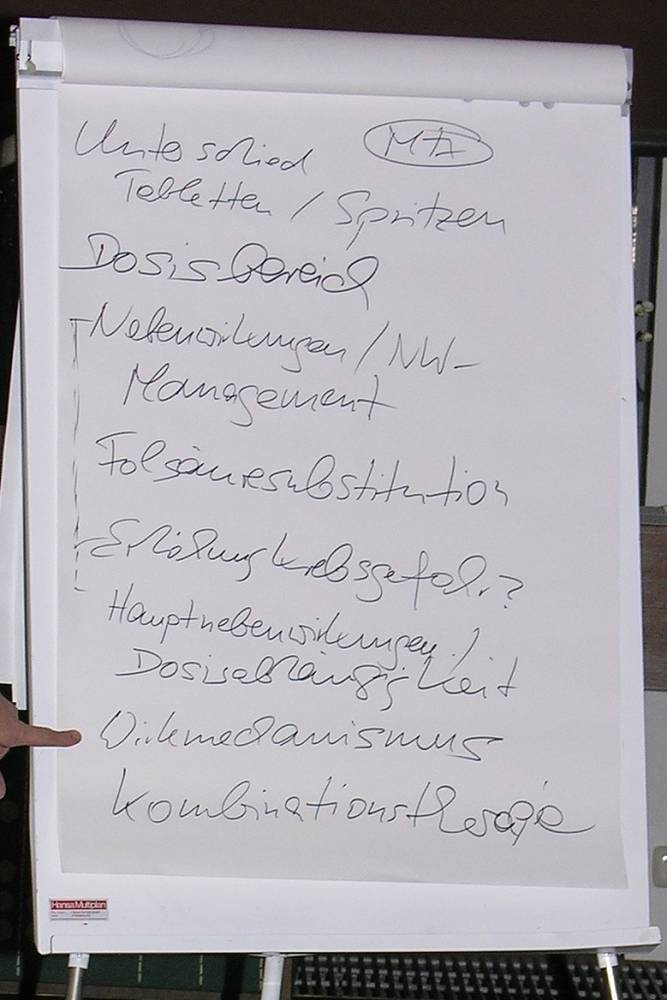 Unterschied MTX
Tabletten / Spritzen
Dosisbereich
Nebenwirkungen / NW-
Management
Folsäuresubstitution
Erhöhung Krebsgefahr?
Hauptnebenwirkungen /
Dosisabhängigkeit
Wirkmechanismus
Kombinationstherapie
Hansa Multiplan